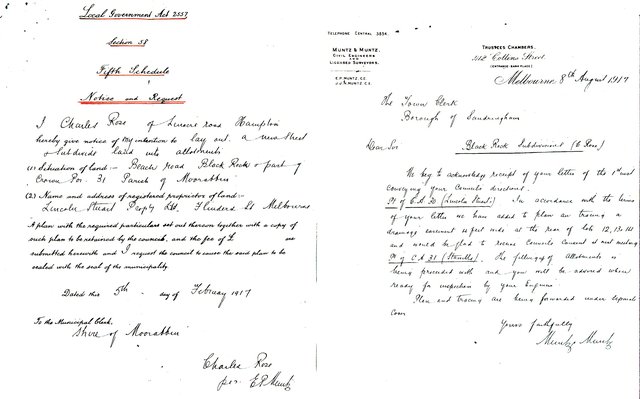 Local Government Act 2557
Section 58
Fifth Schedule
Notice and Request
I Charles Rose of Linacre road Hampton
hereby give notice of My intention to lay out a new Street
& Subdivide land into allotments
(1) Situation of land:- Beach road Black Rock & part of
Crown Por: 31 Parish of Moorabbin
(2) Name and address of registered proprietors of land:-
Lincoln Stuart Propty Ltd. Flinders St Melbourne
A plan with the required particulars set out thereon together with a copy of
such plan to be retained by the council, and the fee of £ are
submitted herewith and I request the council to cause the said plan to be
sealed with the seal of the municipality.
Dated this 5th day of February 1917
To the Municipal Clerk,
Shire of Moorabbin
Charles Rose
per E.P. Muntz
TELEPHONE CENTRAL 3854
MUNTZ & MUNTZ.
CIVIL ENGINEERS
AND
LICENSED SURVEYORS.
E.P. MUNTZ, CE
MUNTZ, CE.
TRUSTEES CHAMBERS.
Collins Street
(ENTRANCE BANK PLACE)
Melbourne 8th August 1917
The Town Clerk
Borough of Sandringham
Dear Sir Black Rock Subdivision (C Rose)
We beg to acknowledge receipt of your letter of the 1st inst
conveying your Councils
Pt of C.A. (Lincoln Stuart). In accordance with the terms
of your letter we have added to plan and tracing a
drainage easement at the rear of lots 12, 13
and would be glad to receive Councils Consent at next meeting
Pt of C.A 31 (). The pegging of allotments is
being proceeded with and you will be advised when
ready for inspection by your Engineer
Plan and tracing are being forwarded under separate
cover
Yours faithfully
Muntz & Muntz